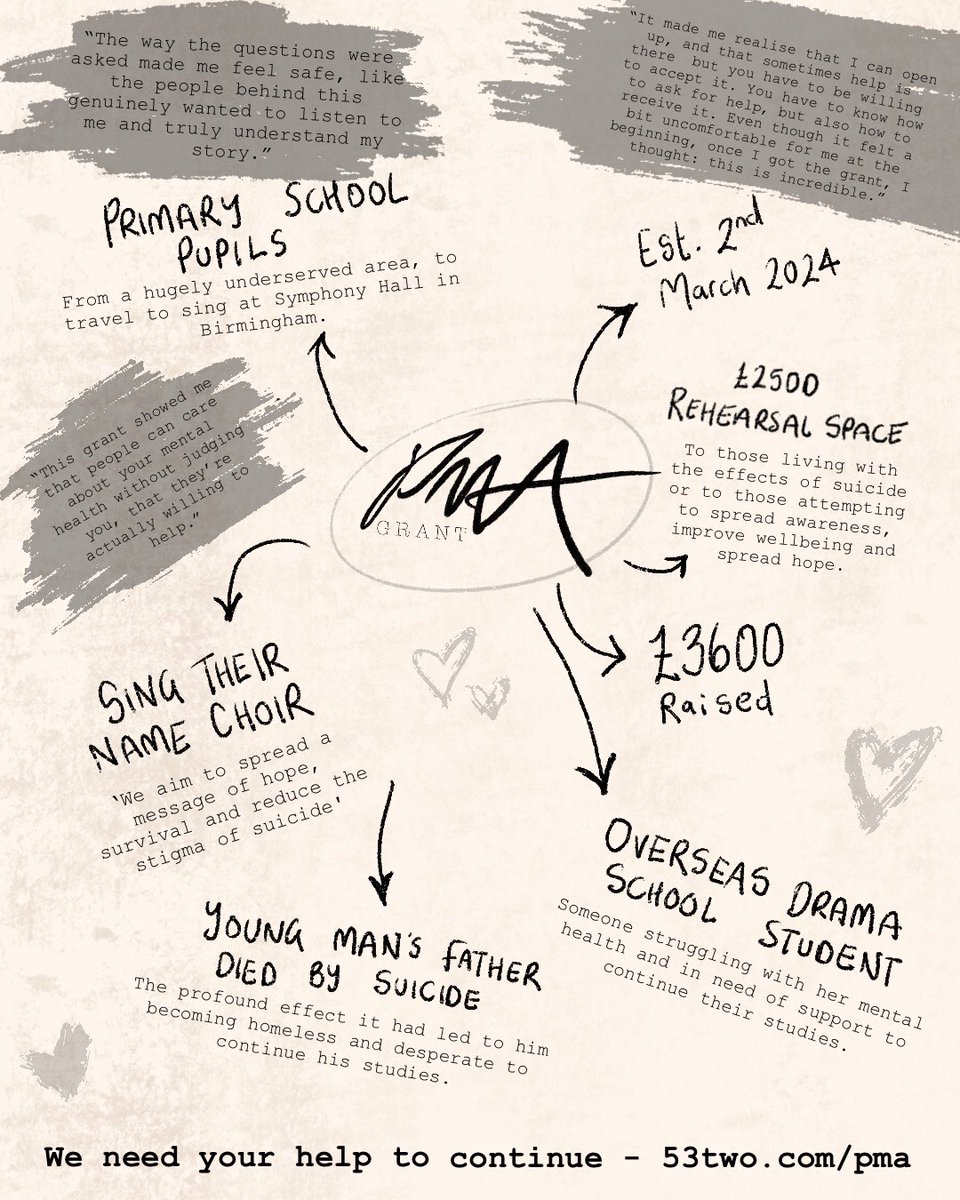 “The way the questions were
asked made me feel safe, like
the people behind this
genuinely wanted to listen to
me and truly understand my
story.”
“It made me realise that I can open
up, and that sometimes help is
there but you have to be willing
to accept it. You have to know how
to ask for help, but also how to
receive it. Even though it felt a
bit uncomfortable for me at the
beginning, once I got the grant, I
thought: this is incredible.”
PRIMARY SCHOOL
PUPILS
From a hugely underserved area, to
travel to sing at Symphony Hall in
Birmingham.
Est. 2nd
March 2024
“This grant showed me
that people can care
about your mental
health without judging
you, that they’re
actually willing to
help.”
PMA
GRANT
£2500
REHEARSAL SPACE
To those living with
the effects of suicide
or to those attempting
to spread awareness,
improve wellbeing and
spread hope.
£3600
Raised
SING THEIR
NAME CHOIR
‘We aim to spread a
message of hope,
survival and reduce the
stigma of suicide'
YOUNG MAN'S FATHER
DIED BY SUICIDE
The profound effect it had led to him
becoming homeless and desperate to
continue his studies.
OVERSEAS DRAMA
SCHOOL STUDENT
Someone struggling with her mental
health and in need of support to
continue their studies.
We need your help to continue - 53two.com/pma